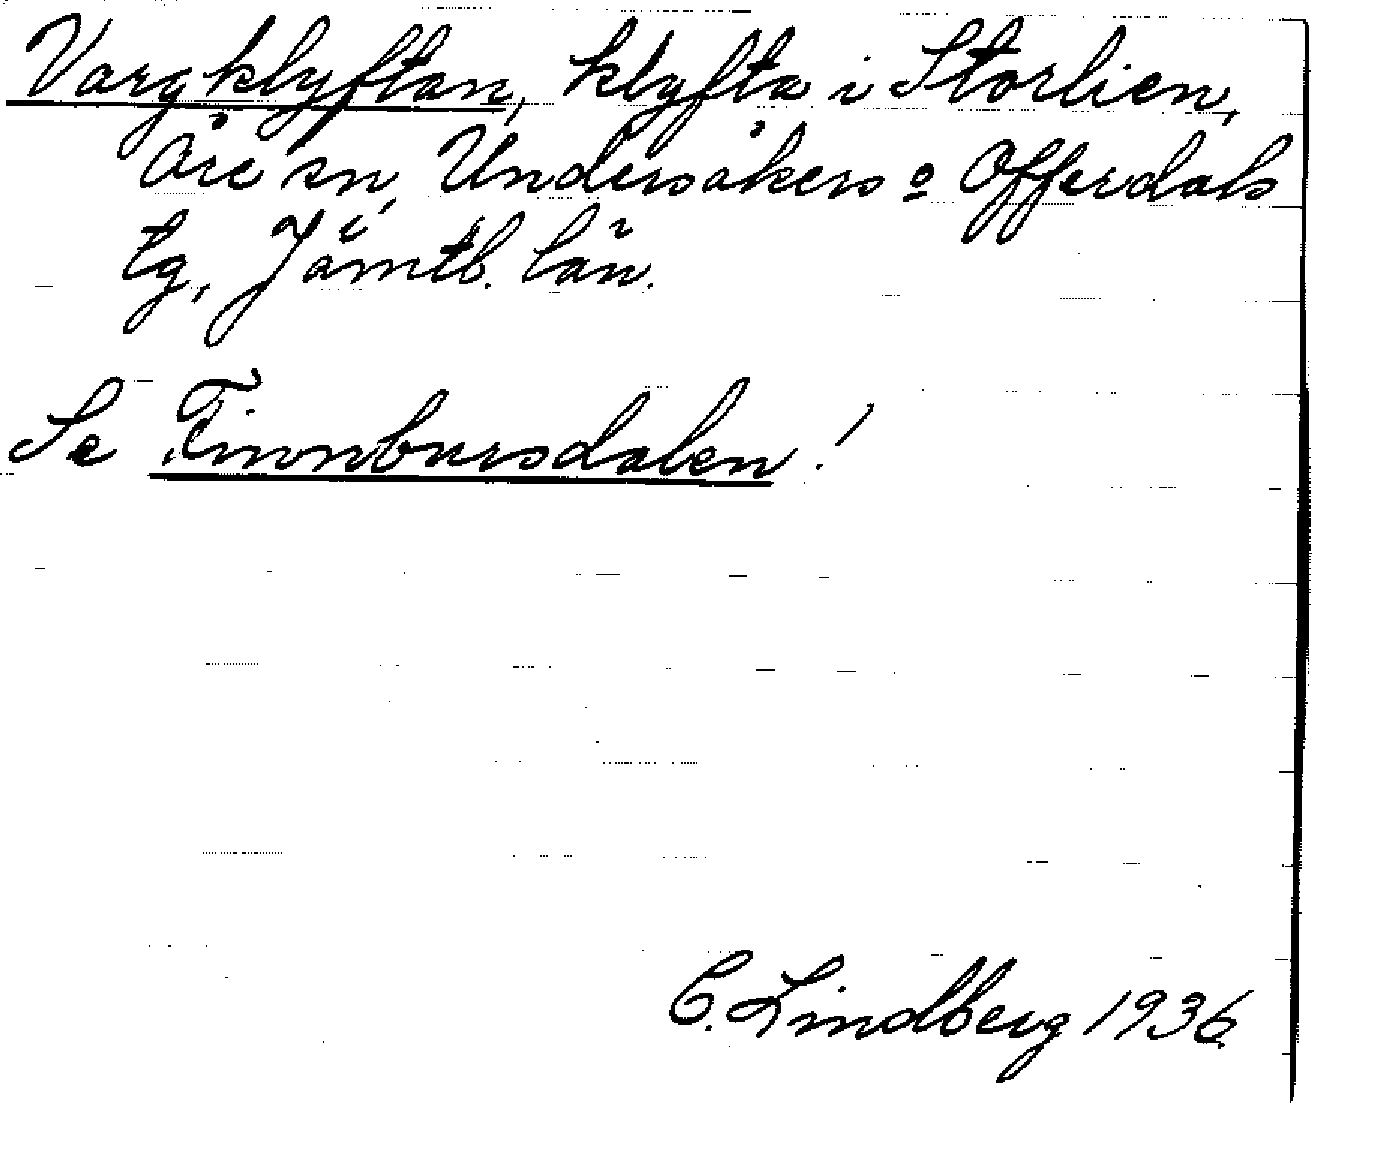 Vargklyftan, klyfta i Storlien,
Åre sn, Undersåkers o Offerdals
tg, Jämtb. län.
Se Finnbursdalen!
C. Lindberg 1936.